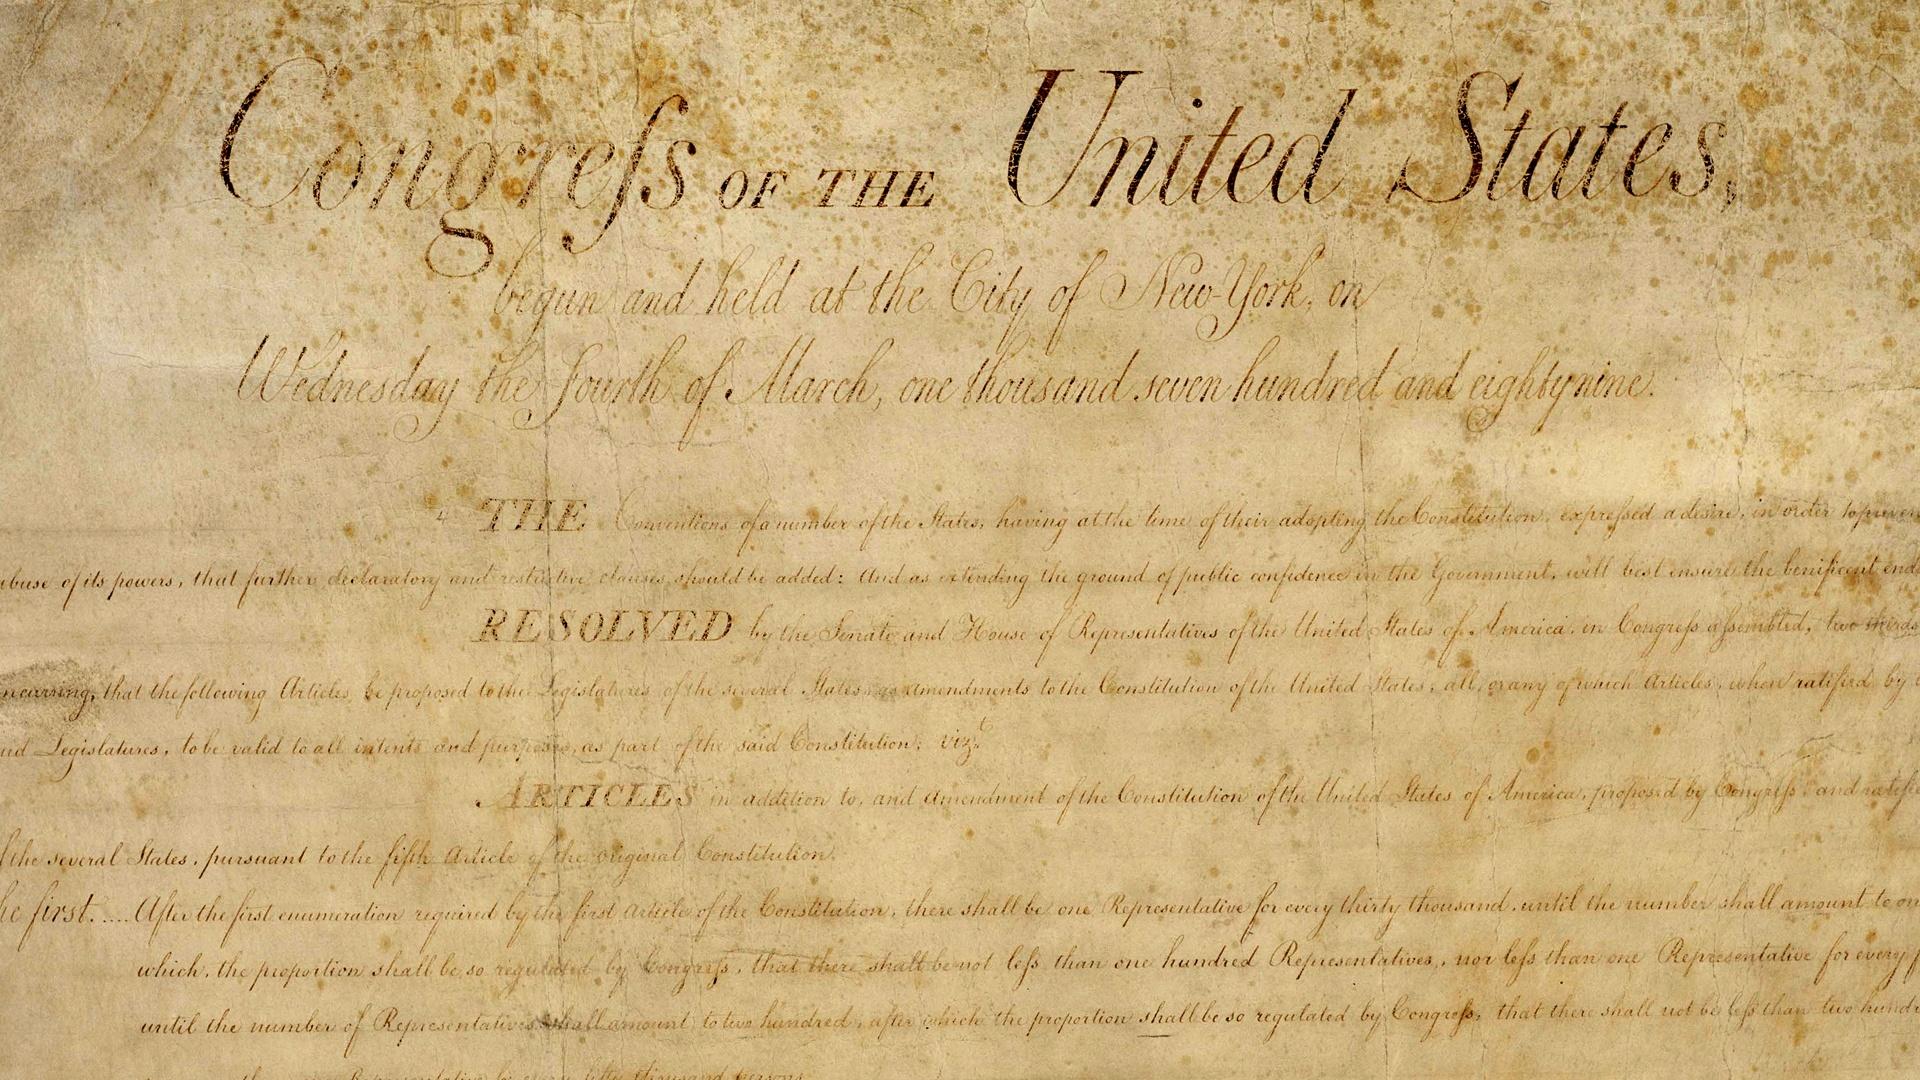 Congreſs OF THE United States,
begun and held at the City of New-York, on
Wednesday the fourth of March, one thousand seven hundred and eighty nine.
THE Conventions of a number of the States, having at the time of their adopting the Constitution, expreſsed a desire, in order to preven
abuse of its powers, that further declaratory and restrictive clauses should be added: And as extending the ground of public confidence in the Government, will best ensure the benificent end
RESOLVED by the Senate and House of Representatives of the United States of America, in Congreſs aſsembled, two thirds
ncurring, that the following Articles be proposed to the Legislatures of the several States, as amendments to the Constitution of the United States, all, or any of which Articles, when ratified by
aid Legislatures, to be valid to all intents and purposes, as part of the said Constitution; vizt
ARTICLES in addition to, and amendment of the Constitution of the United States of America, proposed by Congreſs and ratifie
the several States, pursuant to the fifth Article of the original Constitution.
he first..... After the first enumeration required by the first Article of the Constitution, there shall be one Representative for every thirty thousand, until the number shall amount to on
which, the proportion shall be so regulated by Congreſs, that there shall be not leſs than one hundred Representatives, nor leſs than one Representative for every f
until the number of Representatives shall amount to two hundred, after which the proportion shall be so regulated by Congreſs, that there shall not be leſs than two hundr
Representative for every fifty thousand persons.